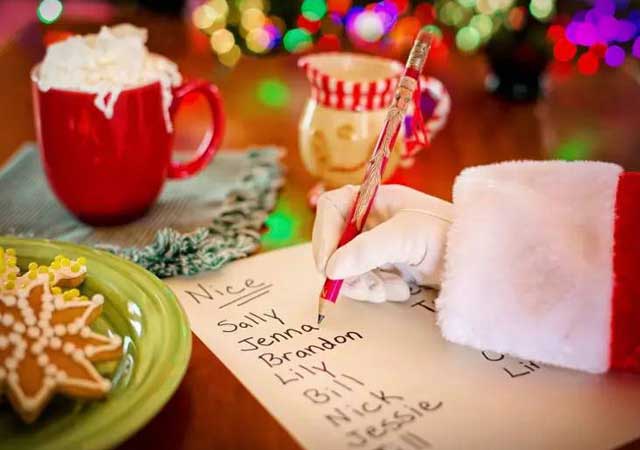 Nice
Sally
Jenna
Brandon
Lily
Bill
Nick
Jessie